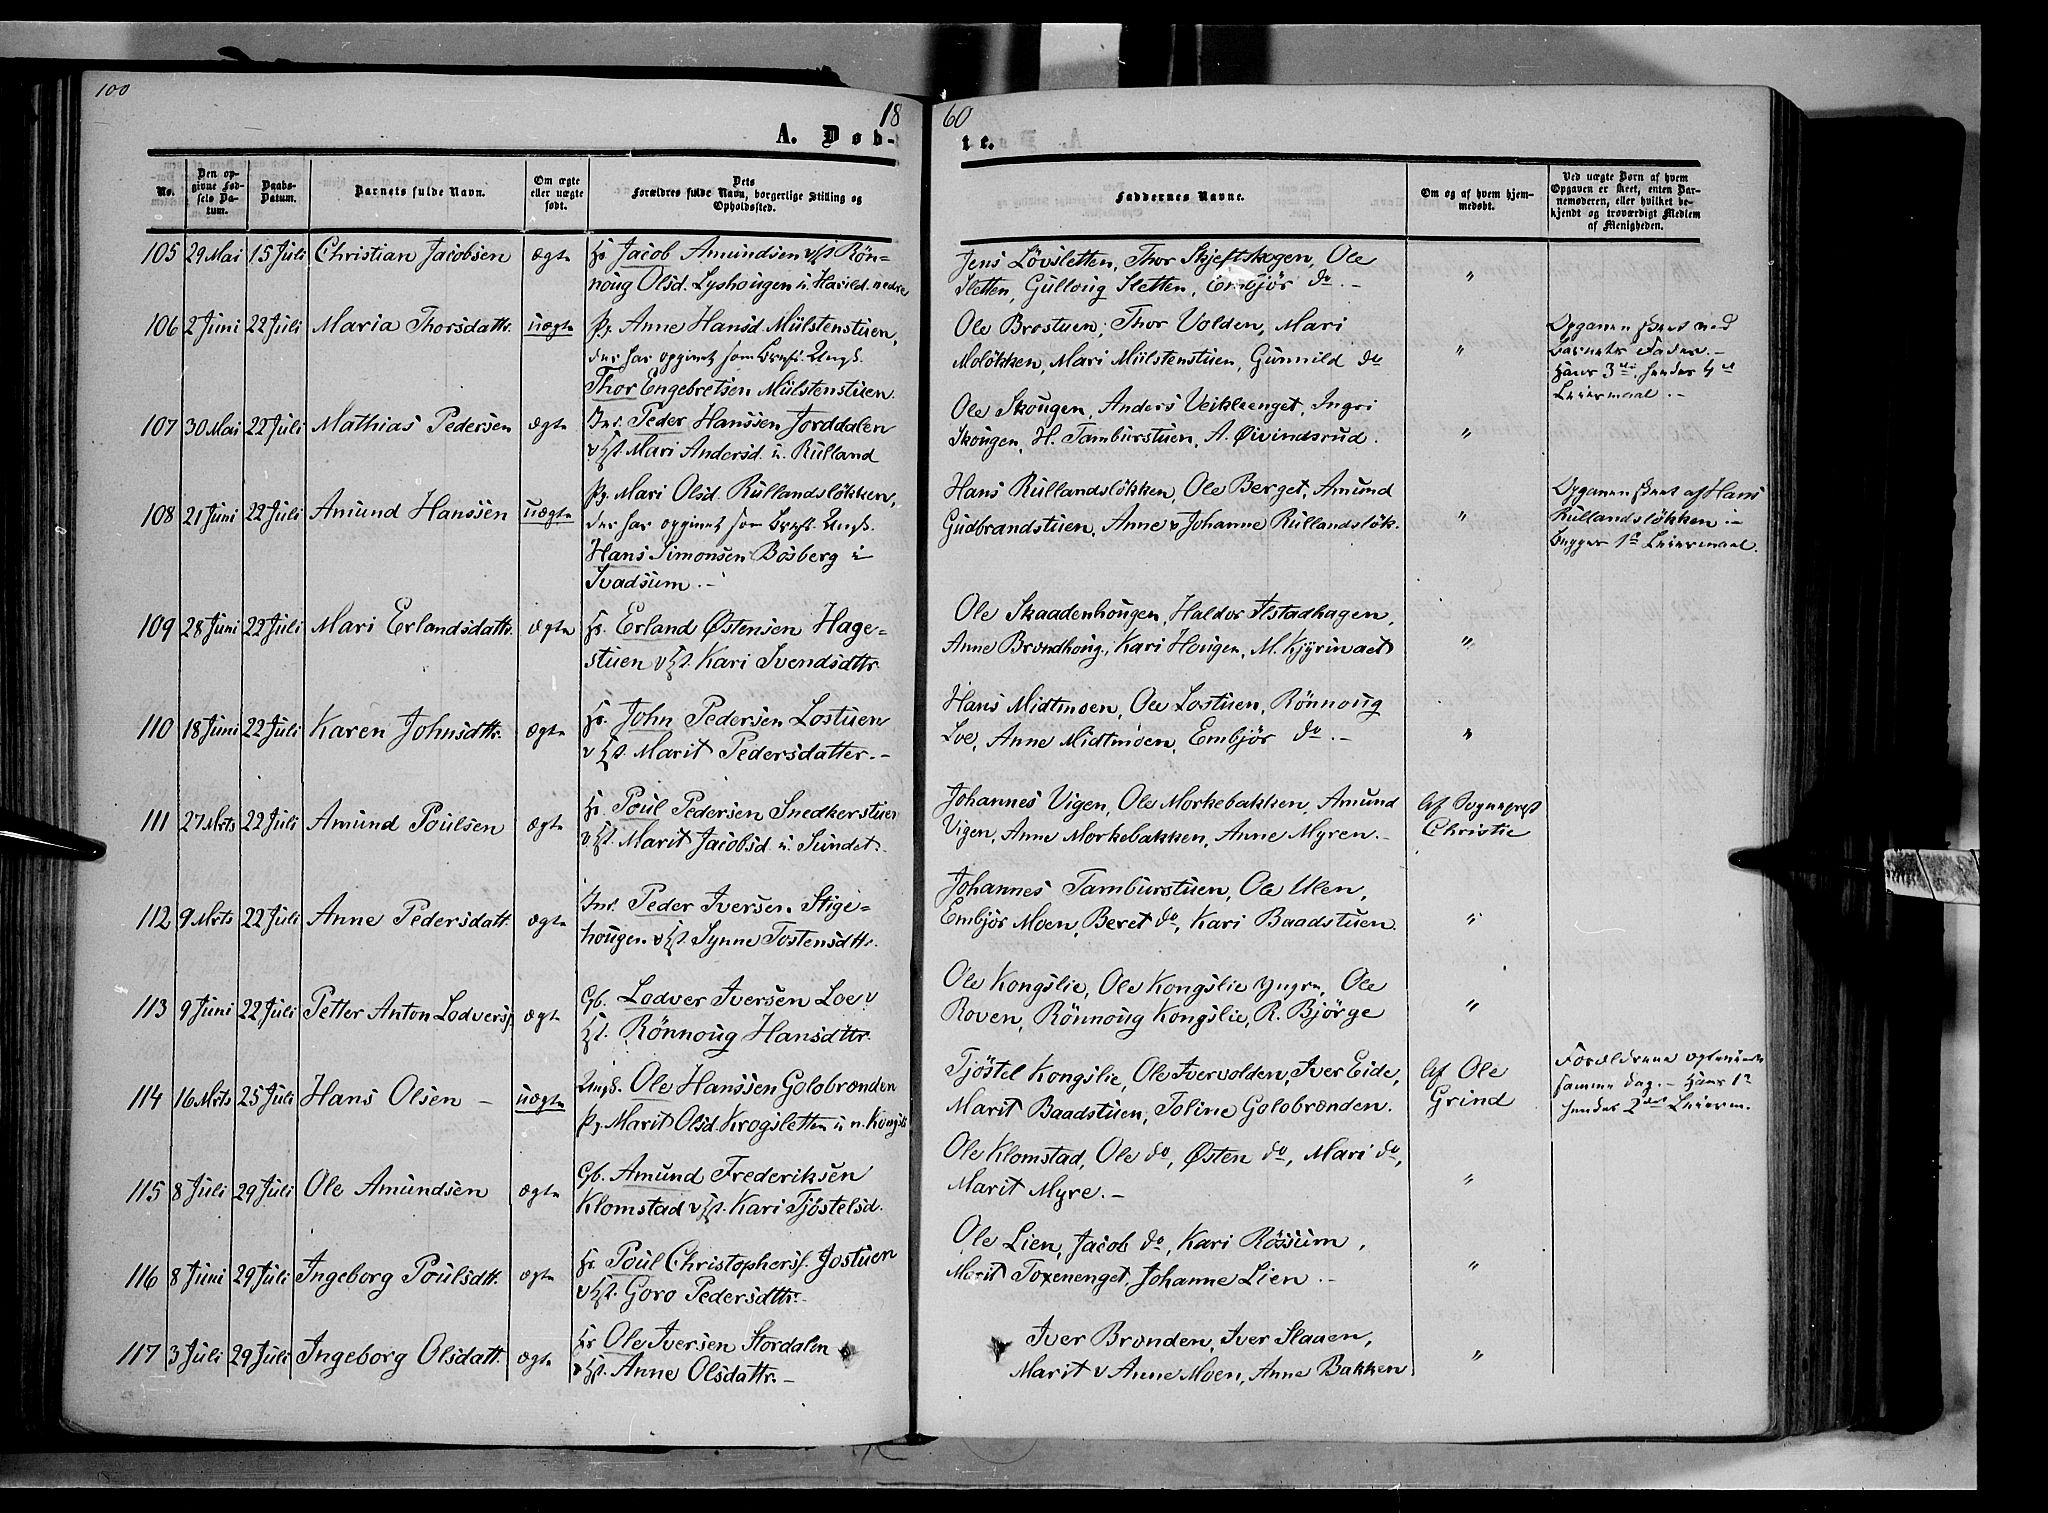 100
18
60
A. Døb-
te.
No.
Den op-
givne Fød-
sels Da-
tum.
Daabs-
Datum.
Barnets fulde Navn.
Om ægte
eller uægte
født.
Dets
Forældres fulde Navn, borgerlige Stilling og
Opholdssted.
Faddernes Navne.
Om og af hvem hjem-
medøbt.
Ved uægte Børn af hvem
Opgaven er skeet, enten Bar-
nemoderen, eller hvilket be-
kjendt og troværdigt Medlem
af Menigheden.
105 29 Mai 15 Juli Christian Jacobsen ægte Jacob Amundsen Rön-
noug Olsd. Lyshougen i Harild. nedre
Jens Lövsletten, Thor Skjeftskogen, Ole
Sletten, Gulloug Sletten, Embjör do. -
"
106 2 Juni 22 Juli Maria Thorsdattr. uægte Pg. Anne Hansd. Mülstenstuen,
der har opgivet som Barnef. Ungk.
Thor Engebretsen Mülstenstuen.
Ole Brostuen, Thor Volden, Mari
Molökken, Mari Mülstenstuen, Gunnild do
"
Opgaven skeet ved
Barnets Fader. -
Hans 3die, hendes 4de
Leiermaal. -
107 30 Mai 22 Juli Mathias Pedersen ægte Inr. Peder Hanssen Jorddalen
v Hst. Mari Andersd. i Rulland
Ole Skougen, Anders Veikleenget, Ingri
Skougen, H. Tamburstuen, A. Øivindsrud.
"
108 21 Juni 22 Juli Amund Hanssen uægte Pg. Mari Olsd. Rullandslökken,
der har opgivet som Barnef. Ungk.
Hans Simonsen Bösberg i
Svadsum. -
Hans Rullandslökken, Ole Berget, Amund
Gudbrandstuen, Anne v Johanne Rullandslök.
"
Opgaven skeet af Hans
Rullandslökken -
Begges 1ste Leiermaal.
109 28 Juni 22 Juli Mari Erlandsdattr. ægte Erland Østensen Hage-
stuen v Hst. Kari Svendsdttr.
Ole Skaadenhougen, Haldor Ilstadhagen,
Anne Brændhoug., Kari Hougen, M.
"
110 18 Juni 22 Juli Karen Johnsdttr. ægte John Pedersen Lostuen
v Hst. Marit Pedersdatter. -
Hans Midtmoen, Ole Lostuen, Rönnoug
Loe, Anne Midtmoen, Embjör do. -
"
111 27 Mrts 22 Juli Amund Poulsen ægte Poul Pedersen Snedkerstuen
v Hst. Marit Jacobsd. i Sundet.
Johannes Vigen, Ole Morkebakken, Amund
Vigen, Anne Morkebakken, Anne Myren. -
Af Sognepræst
Christie
112 9 Mrts 22 Juli Anne Pedersdatt. ægte Inr. Peder Iversen Stige-
hougen v Hst. Synne Tostensdttr.
Johannes Tamburstuen, Ole Ulen,
Embjör Moen, Beret do, Kari Baadstuen.
"
113 9 Juni 22 Juli Petter Anton Lodvers. ægte Gb. Lodver Iversen Loe v
Hst. Rönnoug Hansdttr.
Ole Kongslie, Ole Kongslie yngre, Ole
Roven, Rönnoug Kongslie, R. Bjørge
"
114 16 Mrts 25 Juli Hans Olsen - uægte Ungk. Ole Hanssen Golobrænden
Pg. Marit Olsd. Krogsletten i n. Kongsl
Tjöstel Kongslie, Ole Iversvolden, Iver Eide,
Marit Baadstuen, Toline Golobrænden.
Af Ole
Grind
Forældrene ægteviede
samme dag. - Hans 1ste
hendes 2det Leierm.
115 8 Juli 29 Juli Ole Amundsen ægte Gb. Amund Frederiksen
Klomstad v Hst. Kari Tjöstelsd.
Ole Klomstad, Ole do, Østen do, Mari do,
Marit Myre. -
"
116 8 Juni 29 Juli Ingeborg Poulsdtt. ægte Poul Christophers. Jostuen
v Hst. Goro Pedersdttr.
Ole Lien, Jacob do, Kari Rössum,
Marit Toxenenget, Johanne Lien. -
"
117 3 Juli 29 Juli Ingeborg Olsdatt. ægte Ole Iversen Stordalen
v Hst. Anne Olsdattr. -
Iver Brænden, Iver Slaaen,
Marit v Anne Moen, Anne Bakken
"